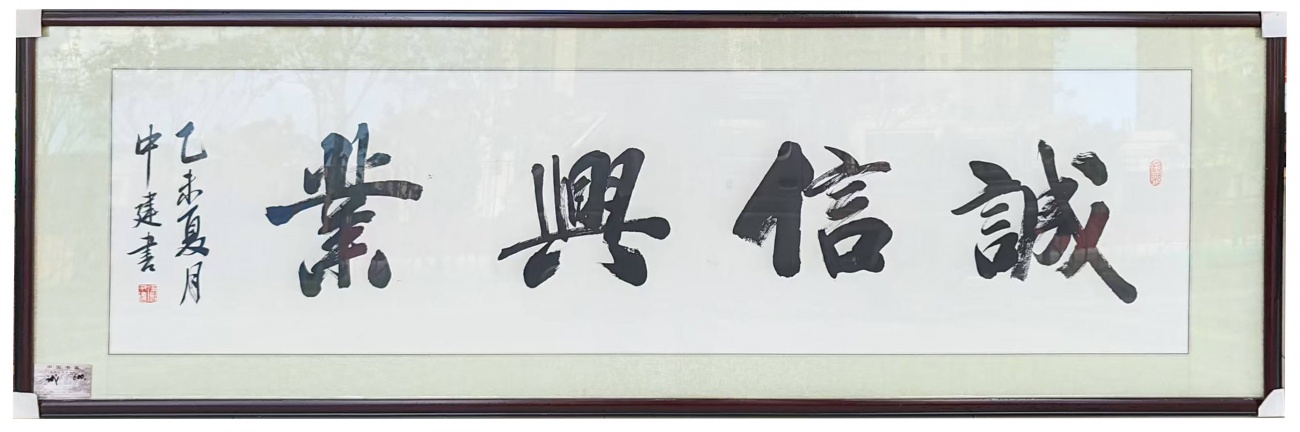 誠信興業
乙未夏月
中建書